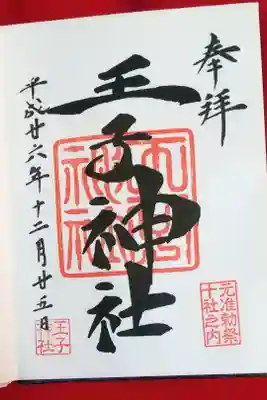 奉拝
王子神社
平成廿六年十二月廿五日
元准勅祭
十社之内
王子